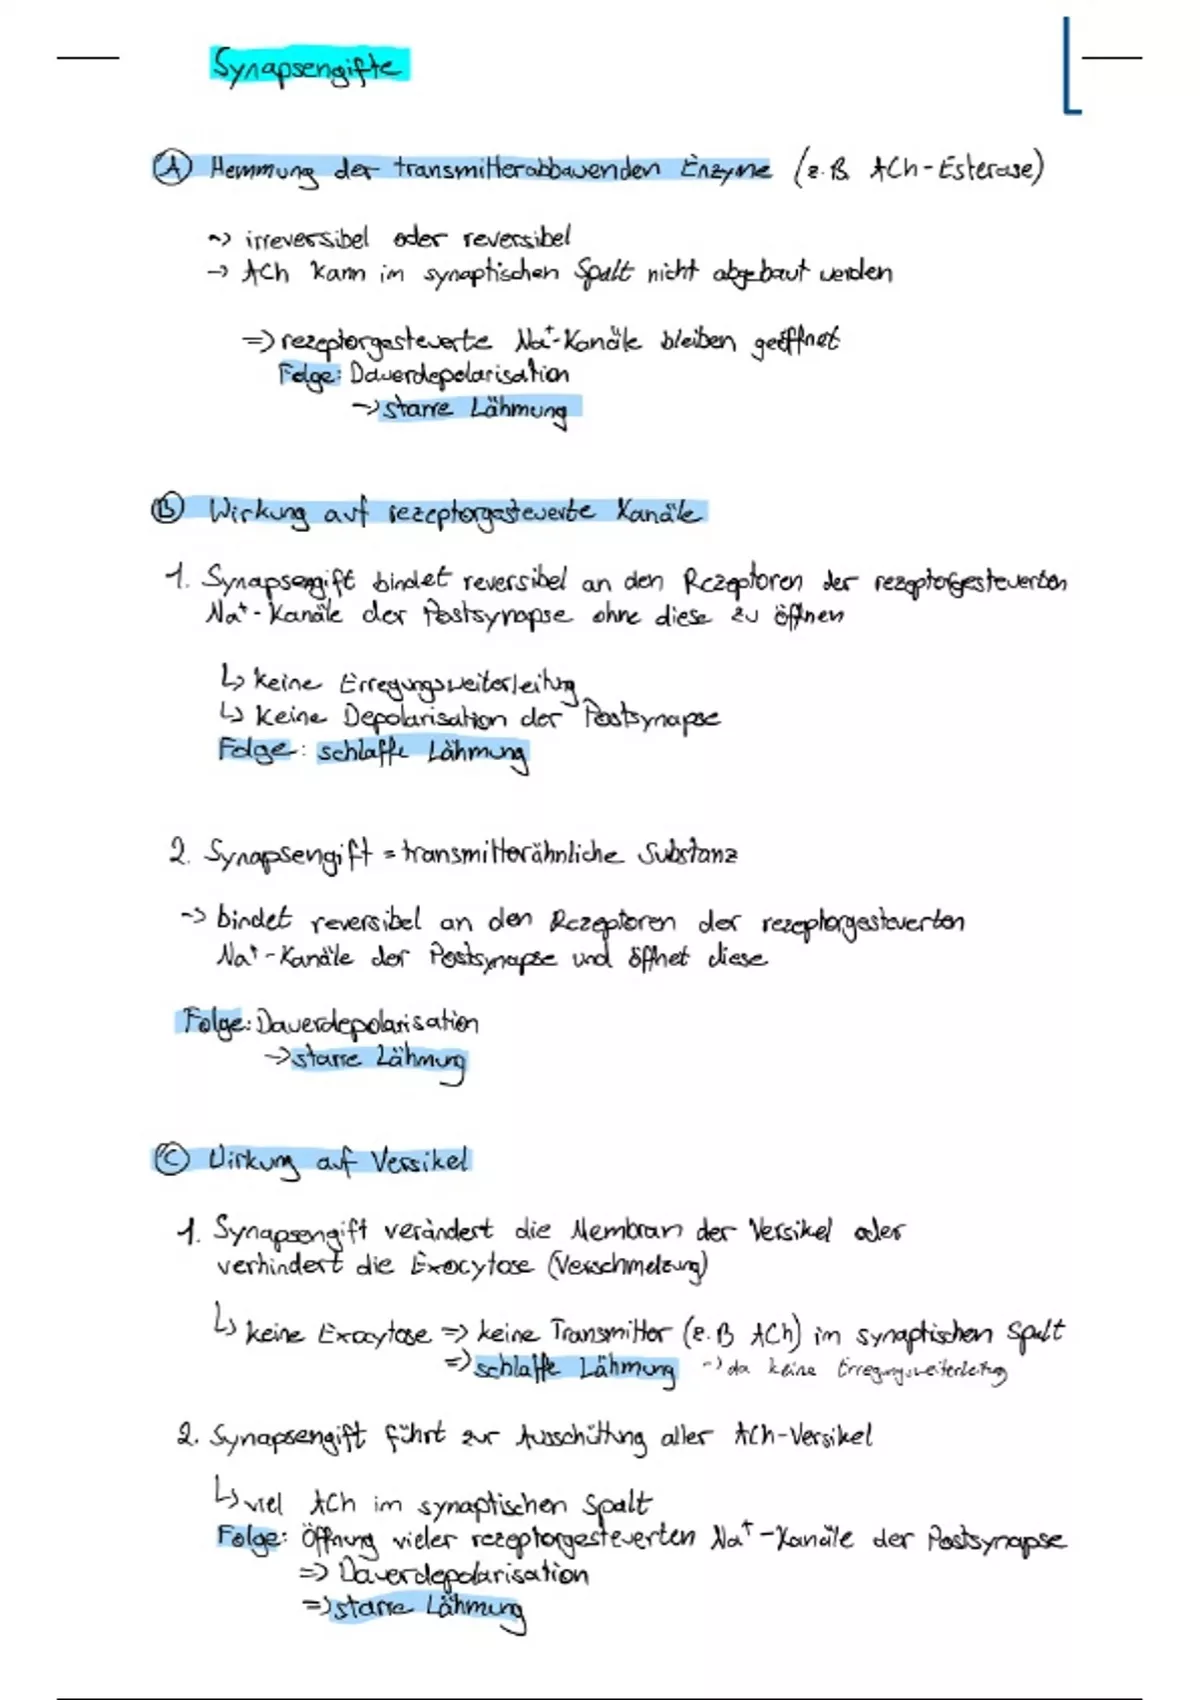 Synapsengifte
Ⓐ Hemmung der transmitterabbauenden Enzyme (z.B. ACh-Esterase)
~> irreversibel oder reversibel
-> ACh kann im synaptischen Spalt nicht abgebaut werden
=> rezeptorgesteuerte Na⁺-Kanäle bleiben geöffnet
Folge: Dauerdepolarisation
-> starre Lähmung
Ⓑ Wirkung auf rezeptorgesteuerte Kanäle
1. Synapsengift bindet reversibel an den Rezeptoren der rezeptorgesteuerten
Na⁺-Kanäle der Postsynapse ohne diese zu öffnen
↳ keine Erregungsweiterleitung
↳ keine Depolarisation der Postsynapse
Folge: schlaffe Lähmung
2. Synapsengift = transmitterähnliche Substanz
-> bindet reversibel an den Rezeptoren der rezeptorgesteuerten
Na⁺-Kanäle der Postsynapse und öffnet diese
Folge: Dauerdepolarisation
-> starre Lähmung
Ⓒ Wirkung auf Versikel
1. Synapsengift verändert die Membran der Versikel oder
verhindert die Exocytose (Verschmelzung)
↳ keine Exocytose => keine Transmitter (z.B ACh) im synaptischen Spalt
=> schlaffe Lähmung -> da keine Erregungsweiterleitung
2. Synapsengift führt zur Ausschüttung aller ACh-Versikel
↳ viel ACh im synaptischen Spalt
Folge: Öffnung vieler rezeptorgesteuerten Na⁺-Kanäle der Postsynapse
=> Dauerdepolarisation
=> starre Lähmung